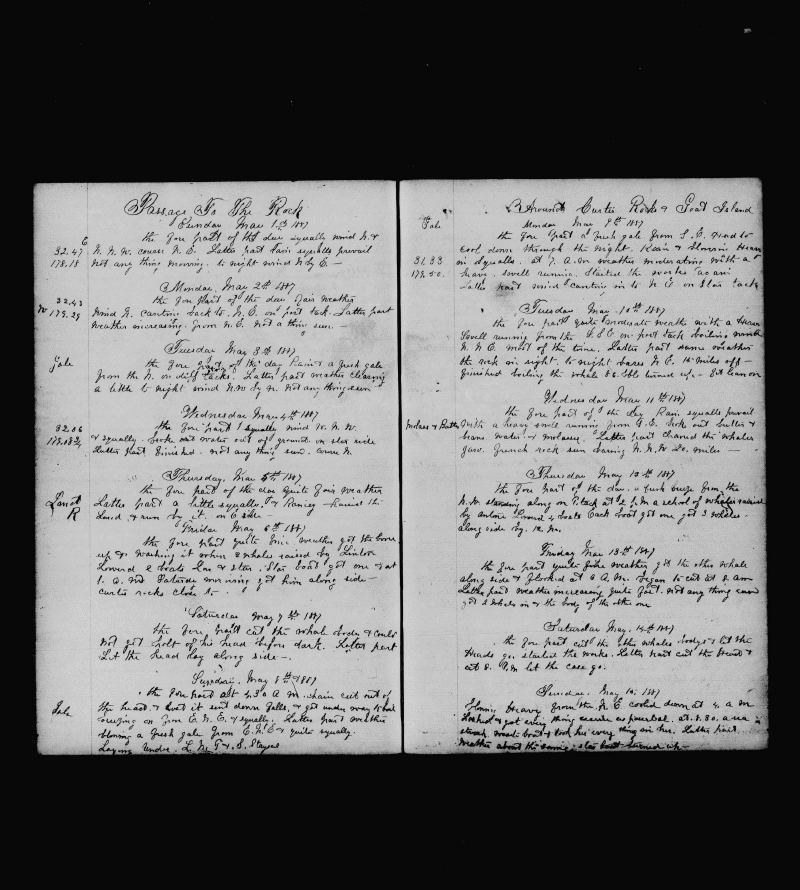 Passage To The Rock
Sunday May 1st 1887
the fore part of the day squally wind N. &
32.47 N. N. W. course N. E. Latter part rain squalls prevail
178.18 Not any thing moving. to night wind N by E. —
Monday May 2nd 1887
32.43 the fore part of the day fair weather
179.29 wind N. canting back to N. E. on port tack. Latter part
weather increasing from N.E. not a thing seen. —
Tuesday May 3rd 1887
Gale the fore part of the day Rain & a fresh gale
from the N. on diff tacks. Latter part weather clearing
a little to night wind N.W. by N. not any thing seen
Wednesday May 4th 1887
32.06 the fore part squally wind W. N. W.
& squally. broke out water out of ground. on star side
Latter part finished. not any thing seen.
Thursday, May 5th 1887
the fore part of the day quite fair weather
Land Latter part a little squally & Rainey —
R Land. & run by it. on E side —
Friday May 6th 1887
the fore part quite fine weather got the bone
up & washing it when 2 whales raised by
Lowered 2 boats Lar & star. Star boat got one & at
1. A. M Saturday morning got him along side —
curtis rocks close to.
Saturday May 7th 1887
the fore part cut the whale body & could
not get holt of his head before dark. Latter part
Let the head lay along side —
Sunday, May 8th 1887
the fore part at 4.30 A.M. again cut out of
Gale the head. & lost it went down Galls, & got under way to
on from E. N. E. & squally. Latter part weather
blowing a fresh gale from E.N.E & quite squally.
Laying Under. L. M. T & S. Stayse
Around Curtis Rocks & Goat Island
Monday May 9th 1887
Gale the fore part a fresh gale from S. E. had to
cool down through the night. Rain & blowing Heavy
31.33 in squalls. at 7. A.M weather moderating with a
179.50. heavy swell running. Started the works again
Latter part wind canting in to N E on star tack
Tuesday May 10th 1887
the fore part quite moderate weather with a Heavy
swell running from the S.S E on port tack boiling
N. N E most of the time. Latter part same weather
the rock in sight. to night bares N. E. 15 miles off —
finished boiling the whale 86 bbl turned up —
Wednesday May 11th 1887
the fore part of the day Rain squalls prevail
Molases & Butter with a heavy swell running from S.E. broke out butter &
water & molasses. Latter part cleared the whales
jaw. french rock seen baring N.N.W 20. miles —
Thursday May 12th 1887
the Fore part of the day. a fresh breeze from the
N.W. standing along on P. tack at 2 P.M a school of whales raised
by Lowrd 4 boats Each boat got one got 3 whales
along side by. 12 M.
Friday May 13th 1887
the fore part quite fine weather got the other whale
along side & flooked at 6 A.M. began to cut at 8. am
Latter part weather increasing quite fast. not any thing seen
got 2 whales in & the body of the other one
Saturday May 14th 1887
the fore part cut the other whales body & let the
Heads go. started the works. Latter part cut the Head &
at 8. P.M let the case go.
Sunday, May 15. 1887
Blowing Heavy from the N E cooled down at 4. a m
Lashed & got every thing secure as possible. at. 8.30. a sea
struck waist boat & took her every thing in her. Latter part
weather about the same. star boat turned up —